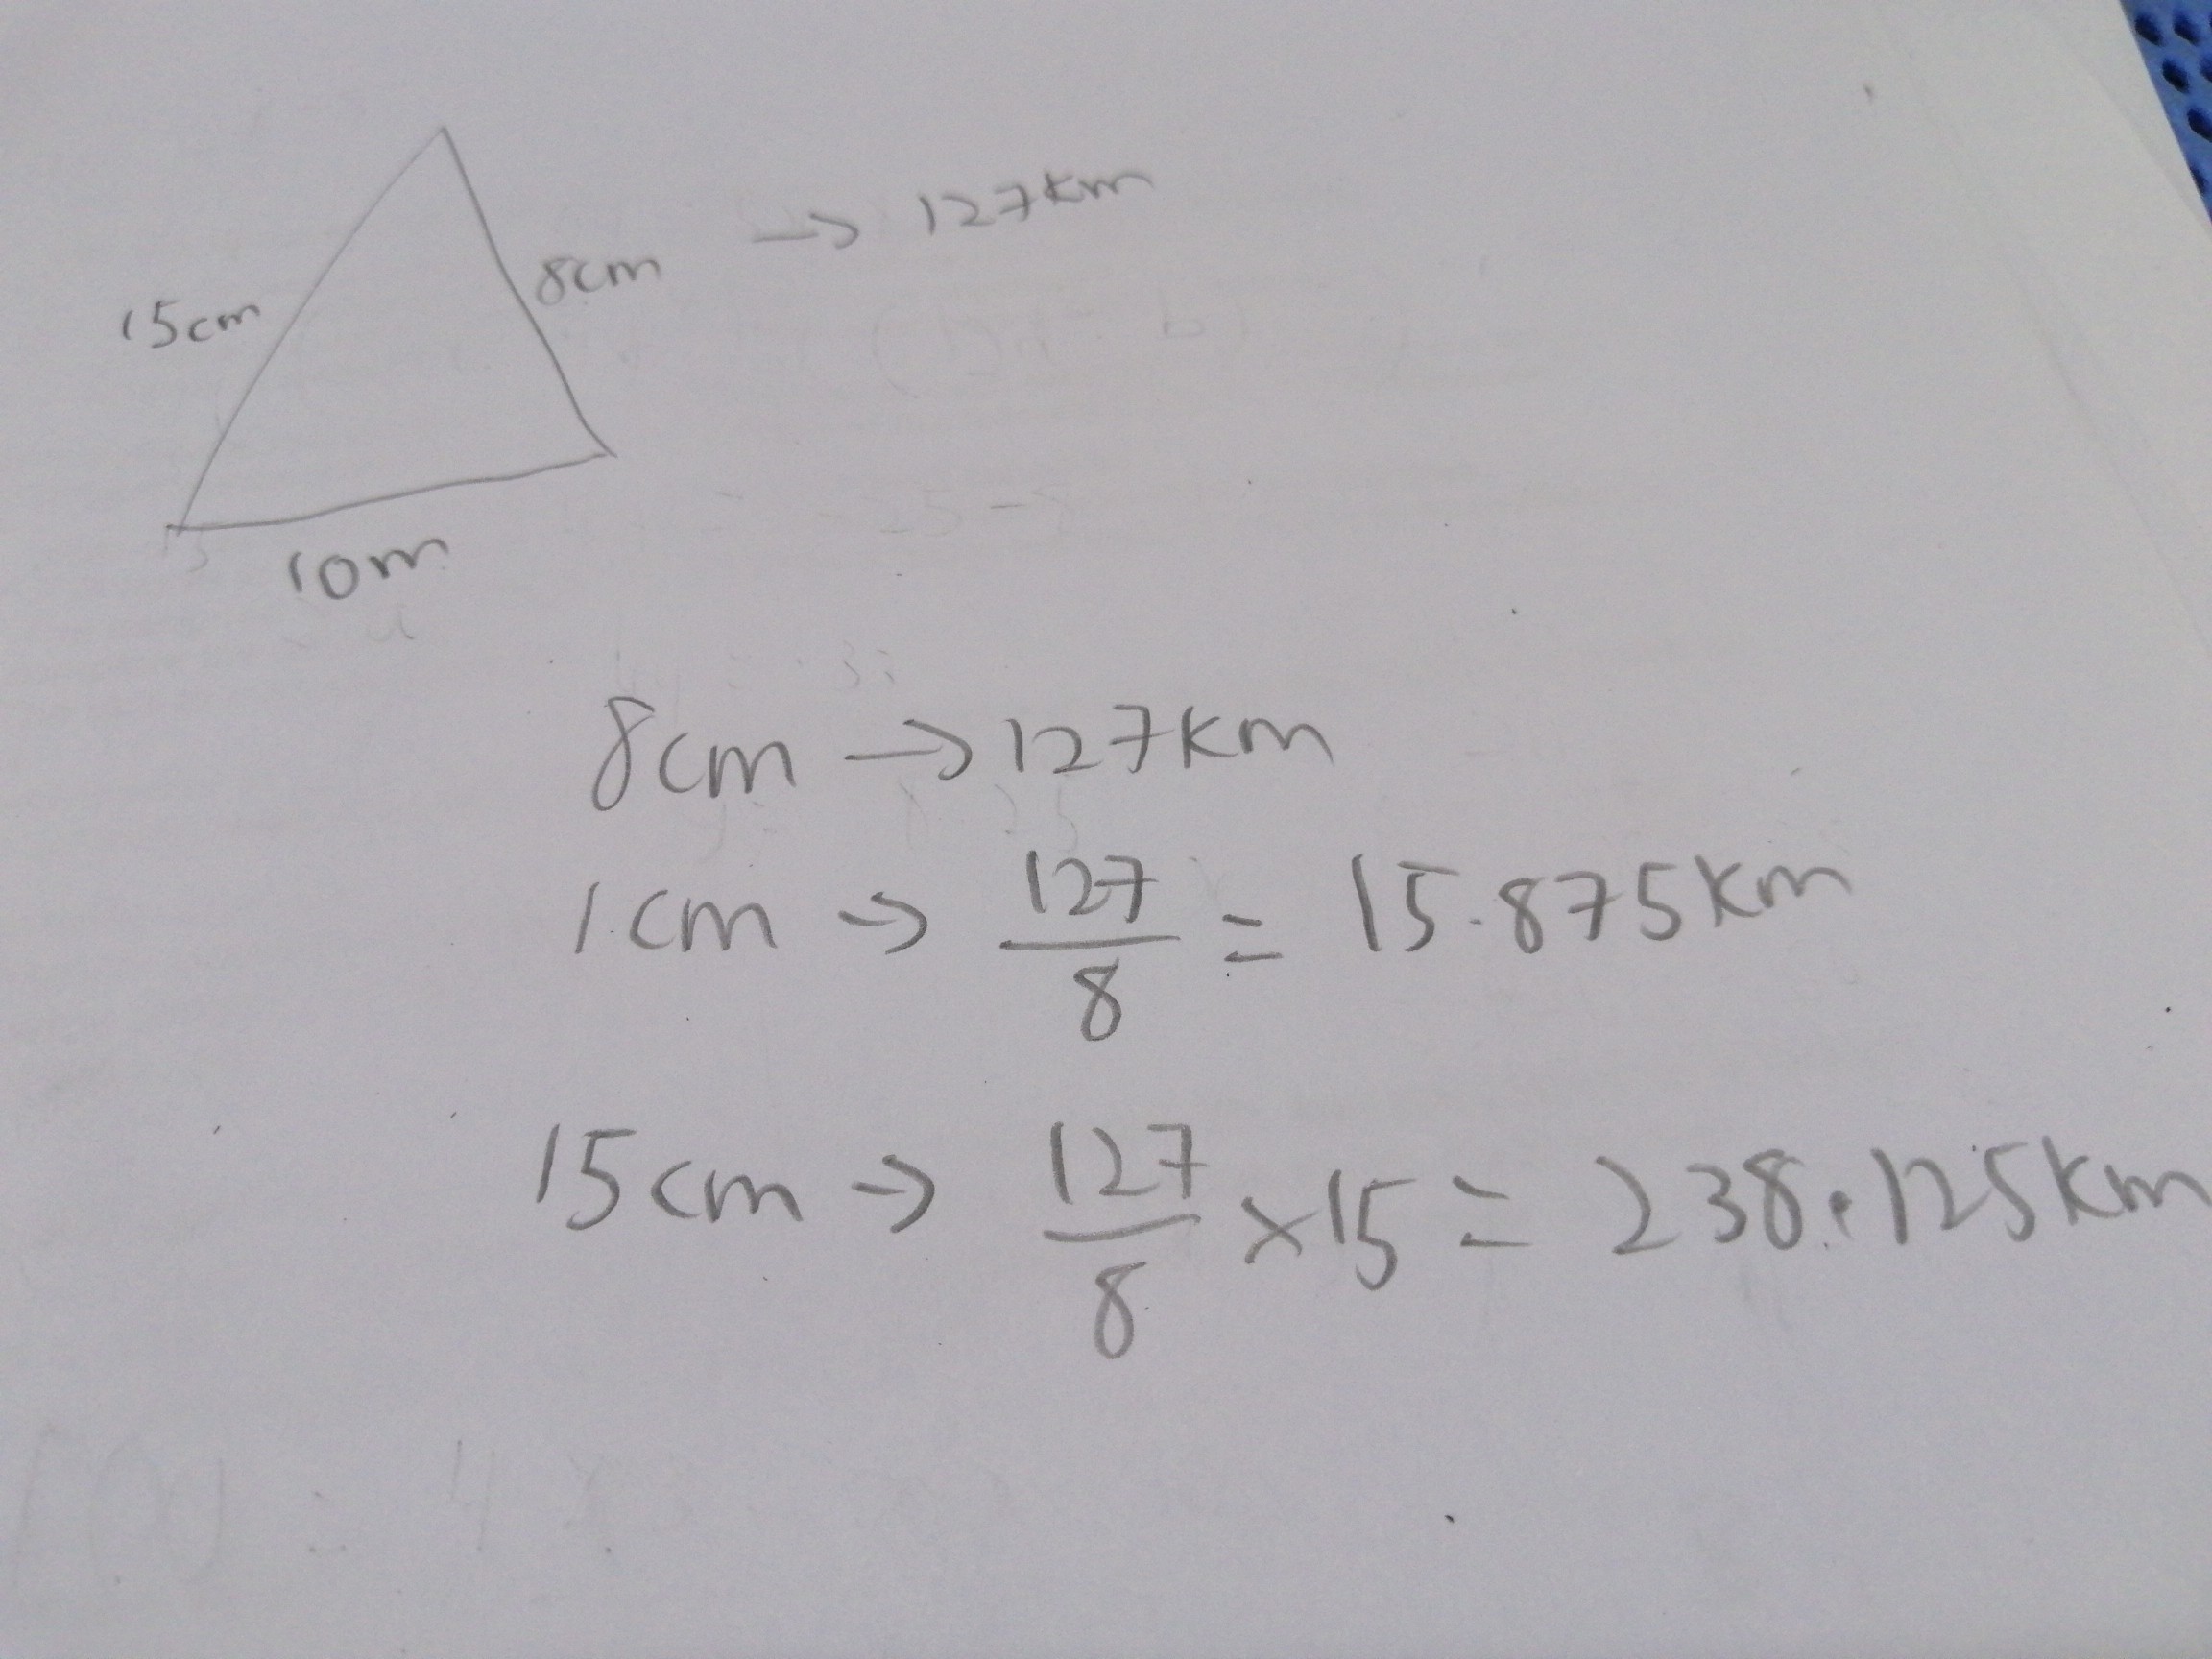 15cm
8cm → 127km
10m
8cm → 127km
1cm → 127/8 = 15.875km
15cm → 127/8 × 15 = 238.125km